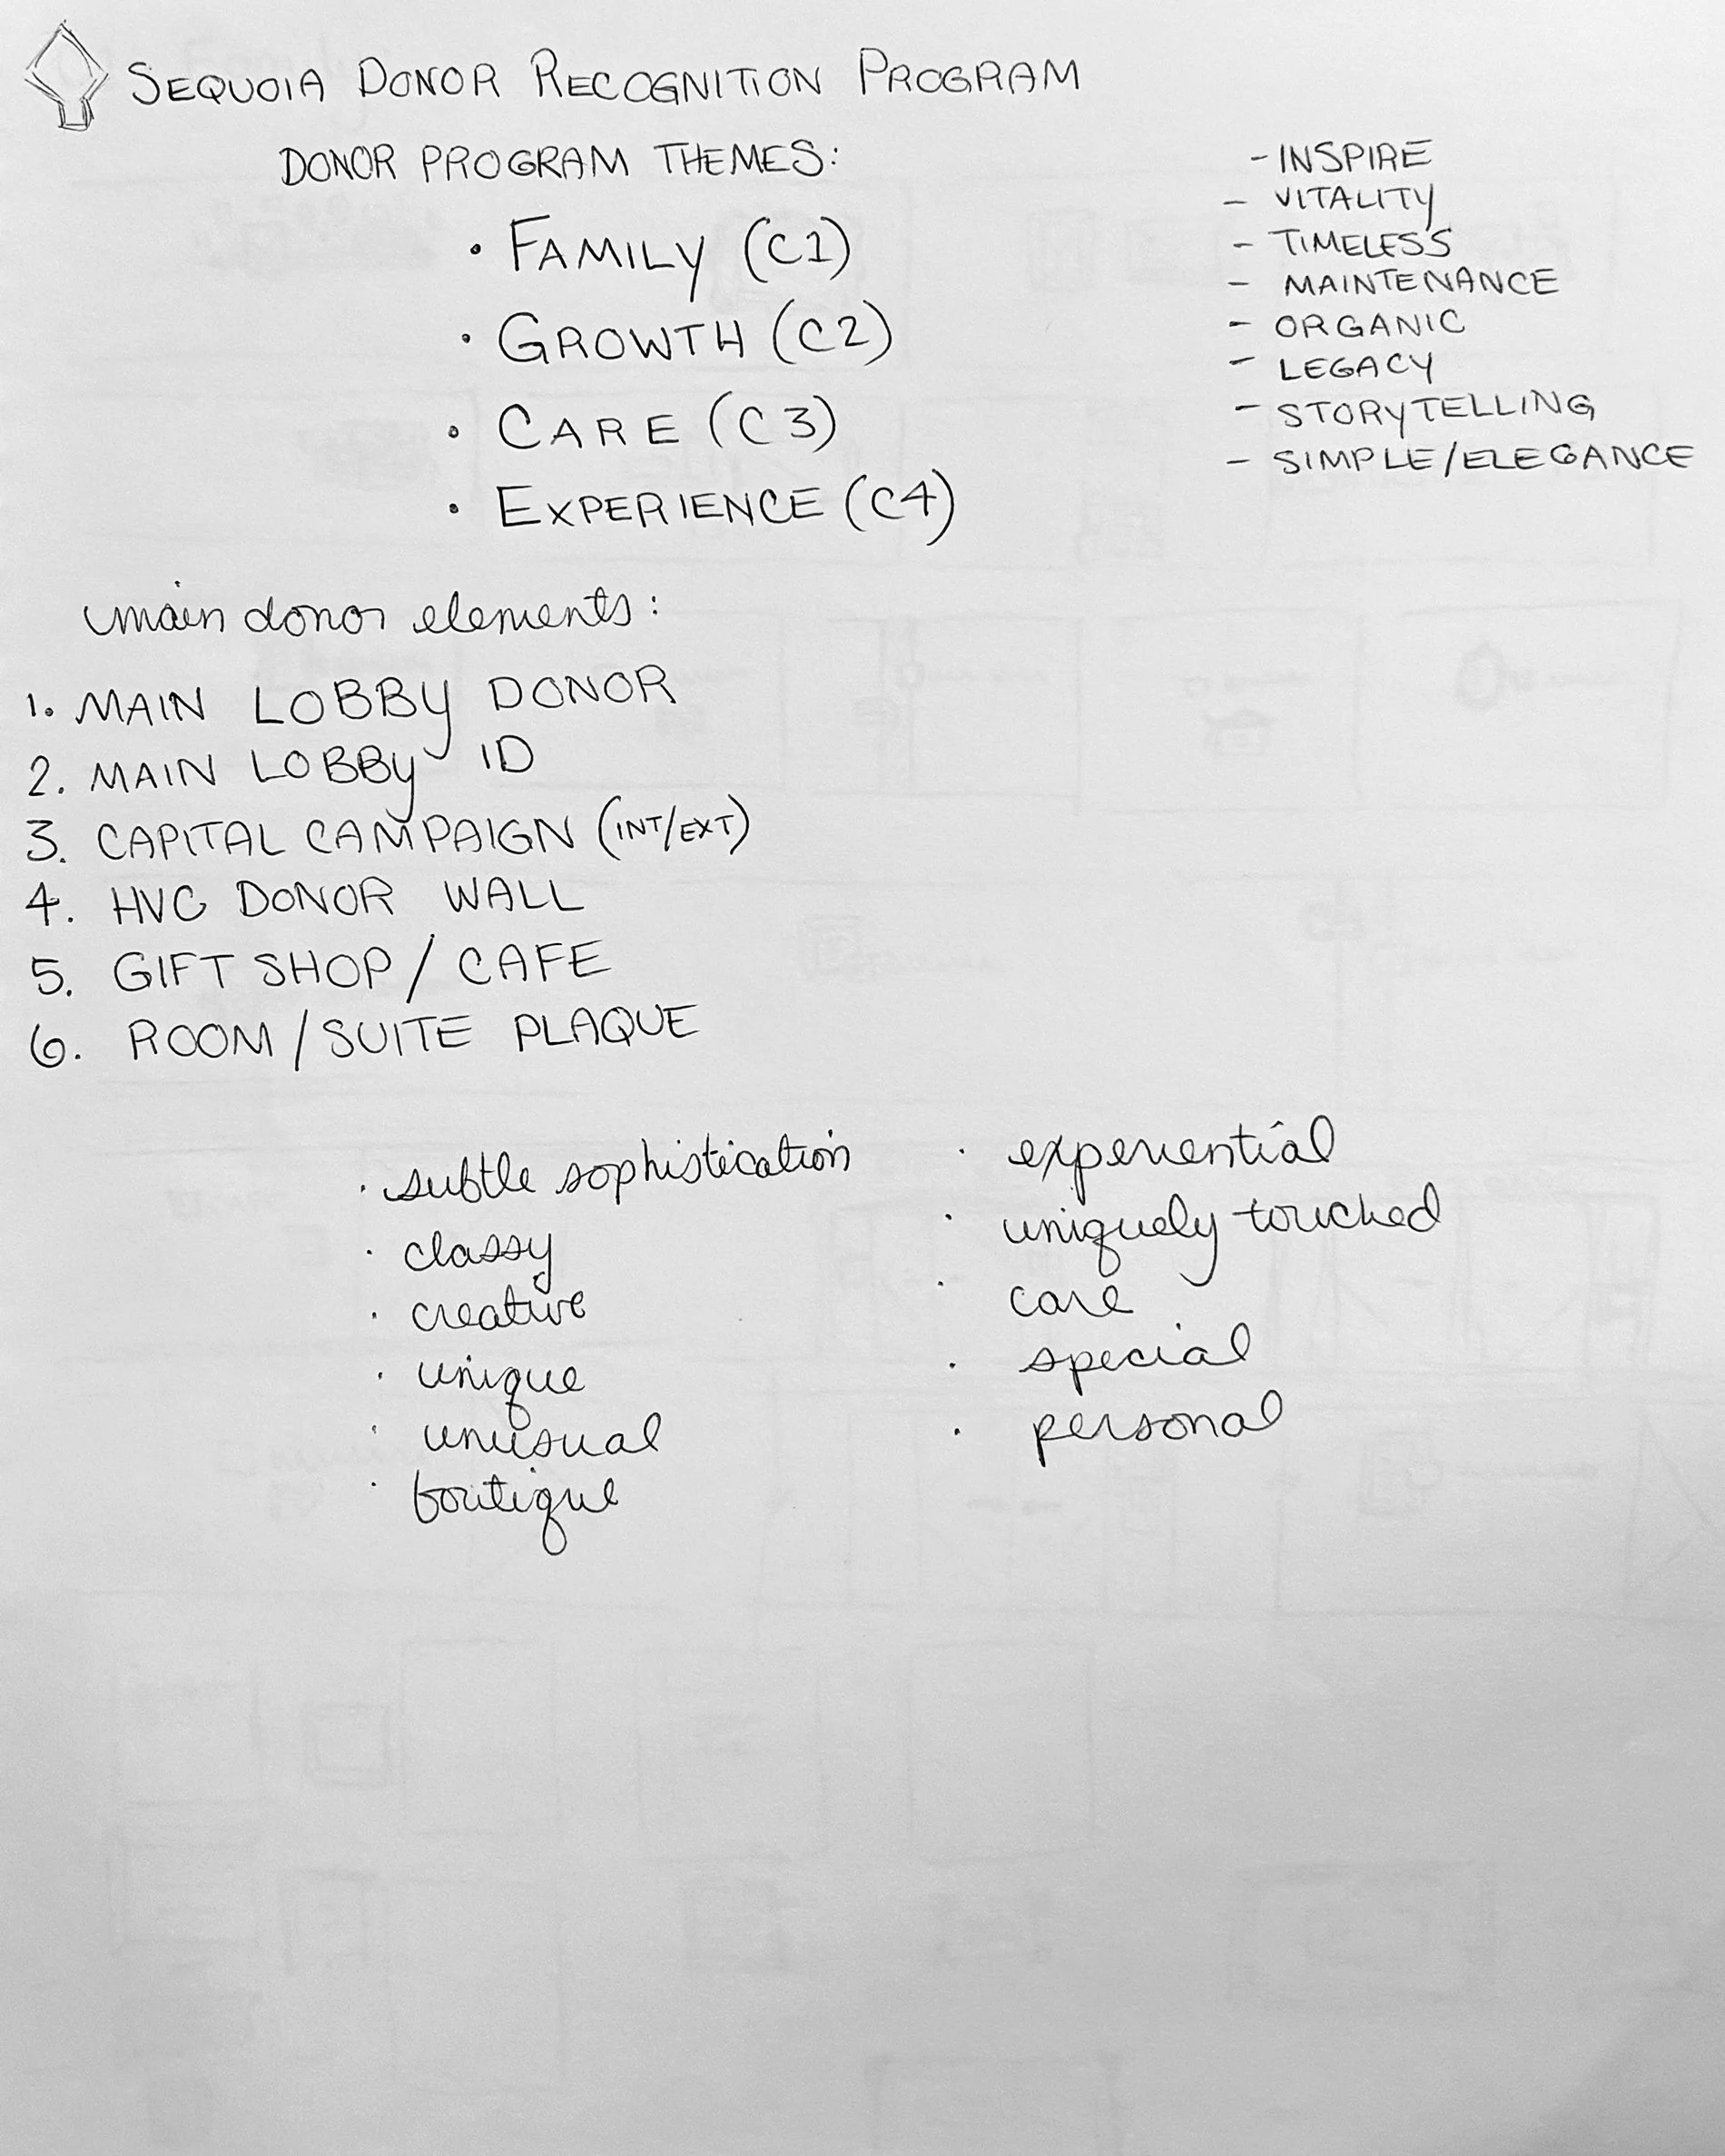 SEQUOIA DONOR RECOGNITION PROGRAM
DONOR PROGRAM THEMES:
• FAMILY (C1)
• GROWTH (C2)
• CARE (C3)
• EXPERIENCE (C4)
- INSPIRE
- VITALITY
- TIMELESS
- MAINTENANCE
- ORGANIC
- LEGACY
- STORYTELLING
- SIMPLE/ELEGANCE
main donor elements:
1. MAIN LOBBY DONOR
2. MAIN LOBBY ID
3. CAPITAL CAMPAIGN (INT/EXT)
4. HVC DONOR WALL
5. GIFT SHOP / CAFE
6. ROOM / SUITE PLAQUE
· subtle sophistication
· classy
· creative
· unique
· unusual
· boutique
· experiential
· uniquely touched
· care
· special
· personal